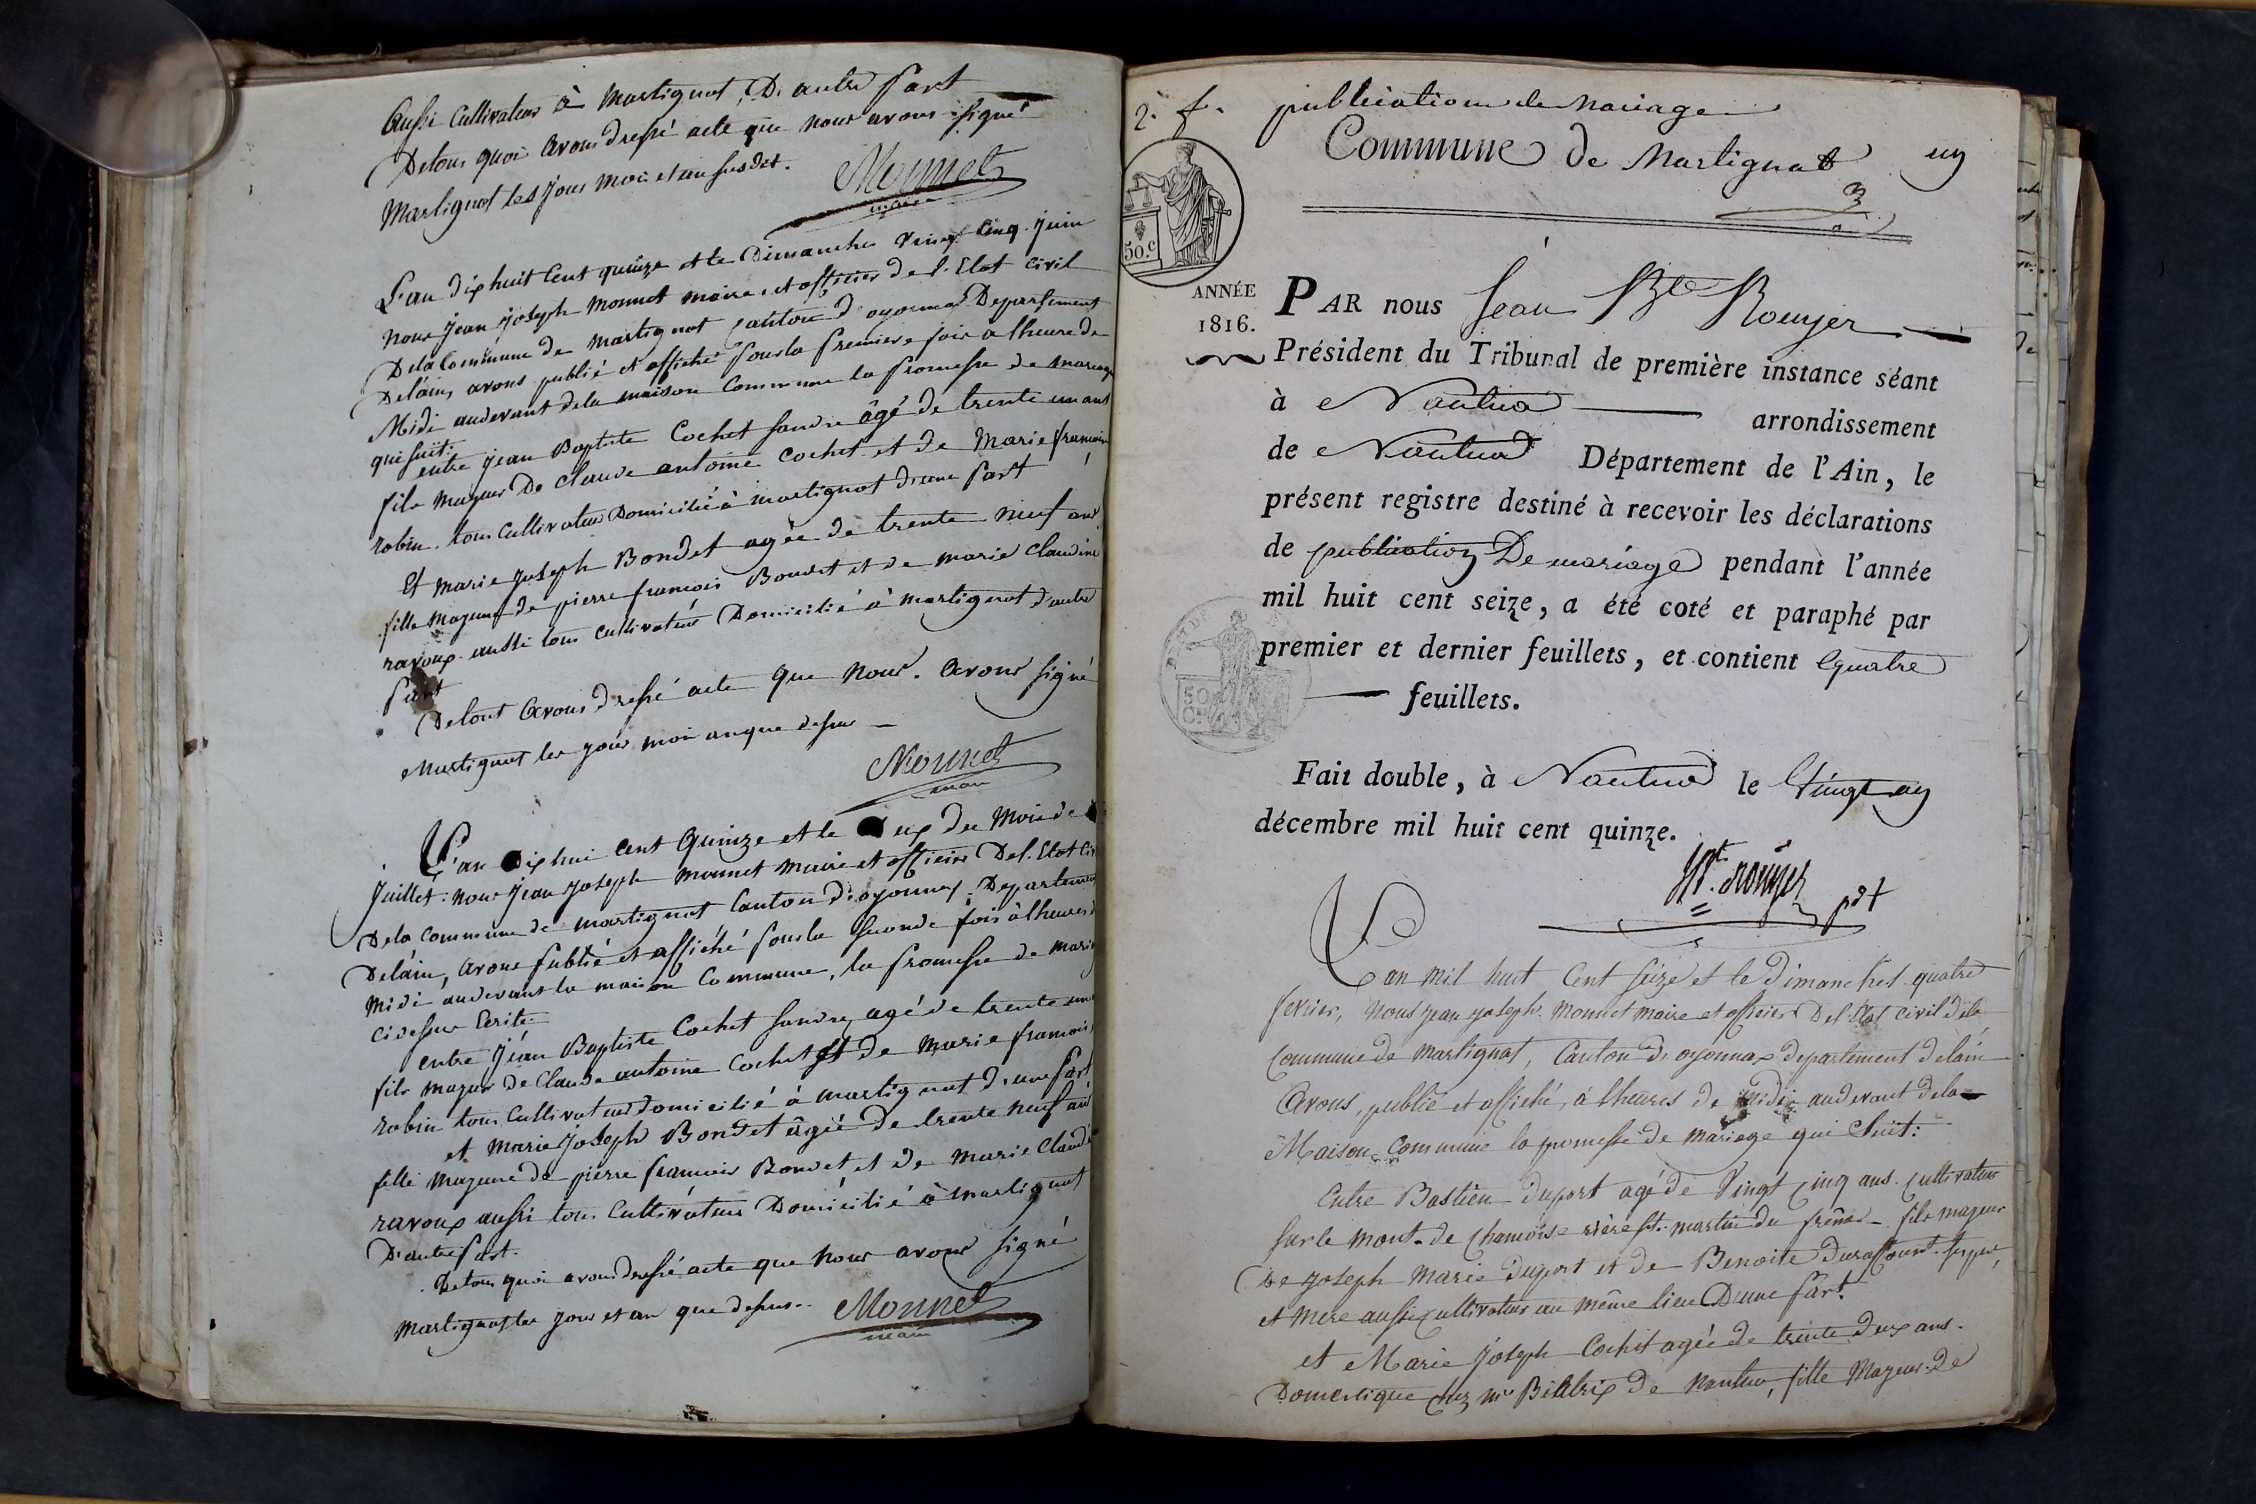 aussi Cultivateur à Martignat, D. autre Part
De tous quoi avons dressé acte que nous avons signé
Martignat les jour mois et an susdit.
Monnet
maire
L'an dix huit Cent quinze et le Dimanche vingt Cinq juin
nous jean joseph monnet maire et officier de l'Etat Civil
De la Commune de martignat Canton d'oyonna Departement
Delain, avons publié et affiché pour la premiere fois a lheure de
Midi audevant dela maison Commune la promesse de mariage
qui suit:
entre jean Baptiste Cochet fandre âgé de trente un ans
fils majeur De Claude antoine Cochet et de Marie francoise
robin. tous Cultivateur Domicilié à martignat d'une part
Et marie joseph Bondet agée de trente neuf ans
fille majeure de pierre francois Bondet et de marie Claudine
ravoux aussi tous cultivateur Domicilié à martignat d'autre
Part
De tout avons dressé acte que nous avons signé
Martignat les jour moi an que dessus
Monnet
maire
L'an Dix hui Cent Quinze et le eux du Mois de
juillet. nous jean joseph monnet maire et officier Del. Etat Civ
De la Commune de martignat Canton d'oyonnax Departemen
Delain, avons publié et affiché pour la seconde fois à lheure d
Midi audevant la maison Commune, la promesse de mari
ci dessus Ecrite
entre jéan Baptiste Cochet fandre, agé de trente un
fils majeur de Claude antoine Cochet et de Marie francois
robin tous Cultivateur domicilié à martignat d'une part
et Marie joseph Bondet âgée de trente neuf an
fille majeure de pierre francois Bondet et de marie Claudi
ravoux aussi tous Cultivateur Domicilié à martignat
D'autre part.
De tous quoi avons dressé acte que nous avons signé
martignat les jour et an que dessus.
Monnet
maire
2. f. publication de mariage
Commune de Martignat un
50.c
ANNÉE
1816.
PAR nous Jean Bte Rouyer
Président du Tribunal de première instance séant
à Nantua arrondissement
de Nantua Département de l'Ain, le
présent registre destiné à recevoir les déclarations
de publication De mariage pendant l'année
mil huit cent seize, a été coté et paraphé par
premier et dernier feuillets, et contient quatre
feuillets.
50
Fait double, à Nantua le Vingt un
décembre mil huit cent quinze.
Rouyer pdt
L'an mil huit Cent seize et le Dimanche quatre
fevrier, nous jean joseph monnet maire et officier Del. Etat civil dela
Commune de martignat, Canton d'oyonnax departement delain
Avons, publié et affiché, à lheures de midi audevant dela
Maison Commune la promesse de mariage qui Suit:
Entre Bastien duport agé de Vingt cinq ans. cultivateur
sur le mont de Chamoise rière st. martin du frêne fils majeur
De joseph Marie duport et de Benoite
et mere aussi cultivateur au même lieu D'une part.
et Marie joseph Cochet agée de trente deux ans.
Domestique chez mr de Nantua, fille Majeur de